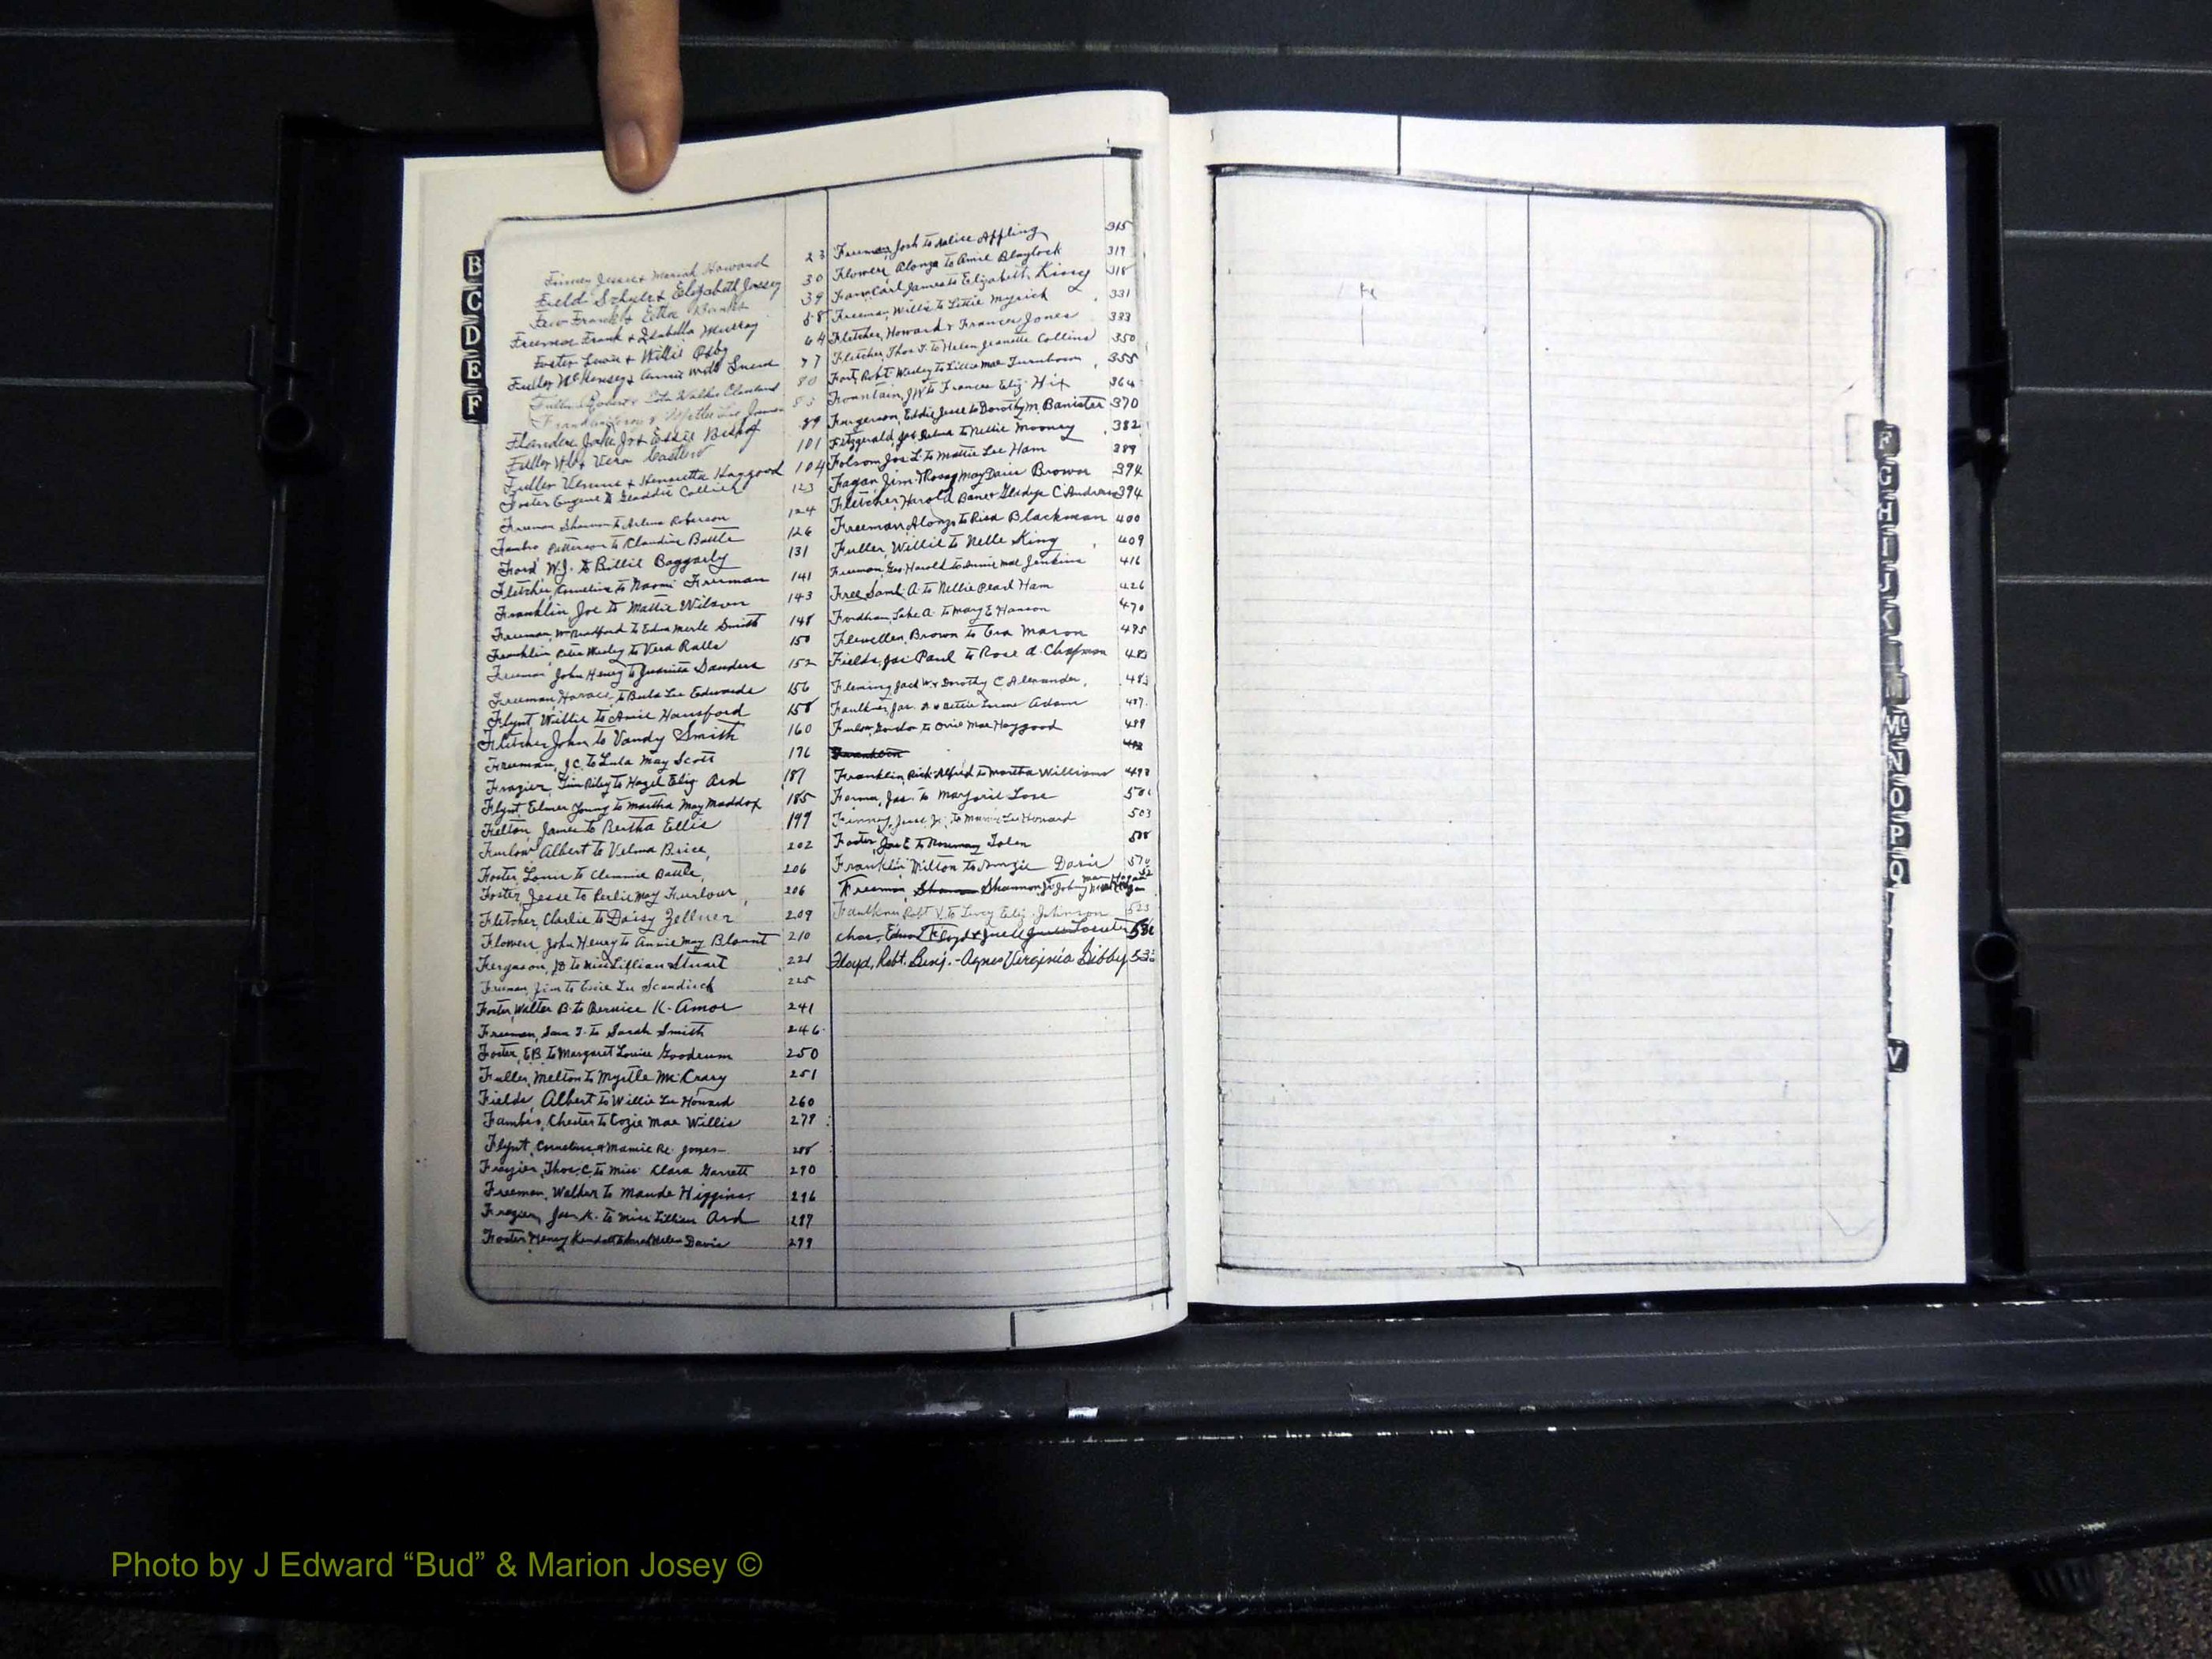 B
C
D
E
F
Finney Jessie & Mariah Howard 23
Field & Elizabeth Jossey 30
Few Frank & Banks 39
Freeman Frank & Isabella Murray 58
Foster Louis & Willie 64
Fuller McKinsey & Annie Snead 77
Fuller Robert & Lota Walker Cleveland 80
Franklin & Myrtle Lee 85
Flanders Jake Jr & Essie Bishop 89
Fuller & Vera Castlew 101
Fuller & Henrietta Haygood 104
Foster Eugene & Gladdis Collier 123
Freeman Shannon to Arlena Roberson 124
Fambro Patterson to Claudine Battle 126
Ford W.J. to Billie Baggarly 131
Fletcher, Cornelius to Naomi Freeman 141
Franklin Joe to Mattie Wilson 143
Freeman, Wm Bradford to Edna Merle Smith 148
Franklin, Peter Wesley to Vera Ralls 150
Freeman John Henry to Juanita Sanders 152
Freeman, Horace, to Beula Lee Edwards 156
Flynt Willie to Annie Hansford 158
Fletcher John to Vandy Smith 160
Freeman, J.C. to Lula May Scott 176
Frazier, Jim Riley to Hazel Eliz Ard 181
Flynt, Elmer Young to Martha May Maddox 185
Felton James to Bertha Ellis 199
Furlow Albert to Velma Brice, 202
Foster Louis to Clemmie Battle, 206
Foster, Jesse to Perlie May Furlow, 206
Fletcher, Charlie to Daisy Zellner 209
Flowers John Henry to Annie May Blount 210
Ferguson, JB to Miss Lillian Stuart 221
Freeman, Jim to Essie Lee Scandrick 225
Foster, Walter B. to Bernice K. Amos 241
Freeman, Sam J. to Sarah Smith 246
Foster, E.B. to Margaret Louise Goodrum 250
Fuller, Melton to Myrtle McCrary 251
Fields, Albert to Willie Lee Howard 260
Fambro, Chester to Cozie Mae Willis 279
Flynt, Cornelius & Mamie Re. Jones 288
Frazier, Thos. C. to Miss Clara Garrett 290
Freeman, Walter to Maude Higgins 296
Frazier, K. to Miss Lillian Ard 297
Foster Henry Kendall to Sarah Helen Davis 299
Freeman, Josh to Alice Appling 315
Flowers Alonza to Annie Blaylock 317
Carl James to Elizabeth King 318
Freeman, Willie to Lettie Myrick 331
Fletcher, Howard & Frances Jones 333
Fletcher, Thos J. to Helen Jeanette Collins 350
Fort, Robt Wesley to Lillie Mae Turnbow 355
Fountain, J.W. to Frances Eliz. Hix 364
Furgerson, Eddie Jesse to Dorothy M. Banister 370
Fitzgerald, to Nellie Mooney 382
Folsom Joe L. to Mattie Lee Ham 389
Fagan Jim Thomas May Brown 394
Fletcher, Harold Bane & Gladys C Andrews 394
Freeman, Alonzo to Risa Blackman 400
Fuller, Willie to Nelle King 409
Freeman, Geo. Harold to Annie Mae Jenkins 416
Free Saml. A. to Nellie Pearl Ham 426
Fordham, Luke A. to Mary E. Hanson 470
Flewellen, Brown to Eva Mason 475
Fields, Jas. Paul to Rose A. Chapman 481
Fleming Jack W. & Dorothy C. Alexander, 483
Faulkner, Jas. & Bettie Adams 487
Gordon to Ovie Mae Haygood 489
Franklin
Franklin, Rick Alfred to Martha Williams 493
Farmer, Jas. to Marjorie Lose 501
Finney, Jesse Jr. to Mamie Lee Howard 503
Foster, Jas E. to Rosemary Tolen 508
Franklin Milton to Angie Davis 510
Freeman, Shannon Jr
Faulkner Robt V. to Livcy Eliz. Johnson 523
Chas. Edward Floyd & Juell Lassiter 536
Floyd, Robt. Benj. - Agnes Virginia Bibby
F
G
H
I
J
K
L
M
Mc
N
O
P
Q
V
Photo by J Edward “Bud” & Marion Josey ©